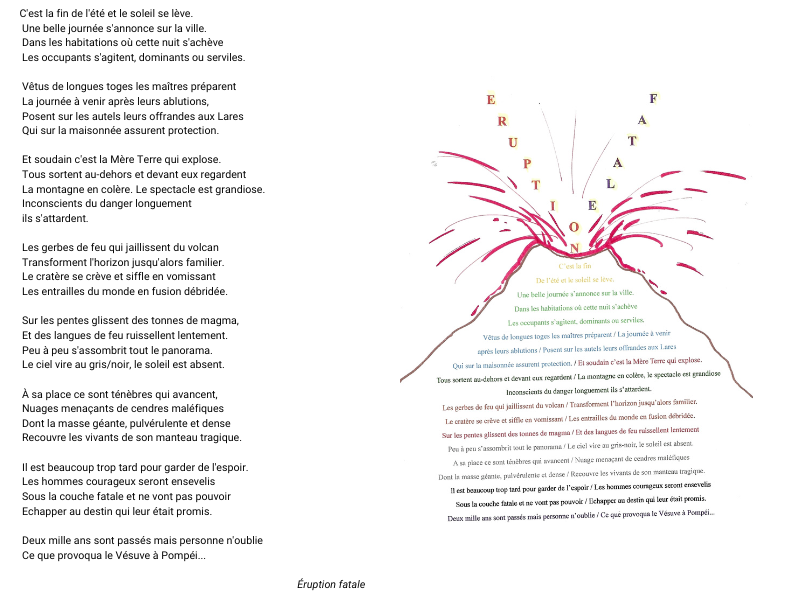 C'est la fin de l'été et le soleil se lève.
Une belle journée s'annonce sur la ville.
Dans les habitations où cette nuit s'achève
Les occupants s'agitent, dominants ou serviles.
Vêtus de longues toges les maîtres préparent
La journée à venir après leurs ablutions,
Posent sur les autels leurs offrandes aux Lares
Qui sur la maisonnée assurent protection.
Et soudain c'est la Mère Terre qui explose.
Tous sortent au-dehors et devant eux regardent
La montagne en colère. Le spectacle est grandiose.
Inconscients du danger longuement
ils s'attardent.
Les gerbes de feu qui jaillissent du volcan
Transforment l'horizon jusqu'alors familier.
Le cratère se crève et siffle en vomissant
Les entrailles du monde en fusion débridée.
Sur les pentes glissent des tonnes de magma,
Et des langues de feu ruissellent lentement.
Peu à peu s'assombrit tout le panorama.
Le ciel vire au gris/noir, le soleil est absent.
À sa place ce sont ténèbres qui avancent,
Nuages menaçants de cendres maléfiques
Dont la masse géante, pulvérulente et dense
Recouvre les vivants de son manteau tragique.
Il est beaucoup trop tard pour garder de l'espoir.
Les hommes courageux seront ensevelis
Sous la couche fatale et ne vont pas pouvoir
Echapper au destin qui leur était promis.
Deux mille ans sont passés mais personne n'oublie
Ce que provoqua le Vésuve à Pompéi...
ERUPTION
FATALE
C'est la fin
De l'été et le soleil se lève.
Une belle journée s'annonce sur la ville.
Dans les habitations où cette nuit s'achève
Les occupants s'agitent, dominants ou serviles.
Vêtus de longues toges les maîtres préparent / La journée à venir
après leurs ablutions / Posent sur les autels leurs offrandes aux Lares
Qui sur la maisonnée assurent protection. / Et soudain c'est la Mère Terre qui explose.
Tous sortent au-dehors et devant eux regardent / La montagne en colère, le spectacle est grandiose
Inconscients du danger longuement ils s'attardent.
Les gerbes de feu qui jaillissent du volcan / Transforment l'horizon jusqu'alors familier.
Le cratère se crève et siffle en vomissant / Les entrailles du monde en fusion débridée.
Sur les pentes glissent des tonnes de magma / Et des langues de feu ruissellent lentement
Peu à peu s'assombrit tout le panorama / Le ciel vire au gris-noir, le soleil est absent.
A sa place ce sont ténèbres qui avancent / Nuage menaçant de cendres maléfiques
Dont la masse géante, pulvérulente et dense / Recouvre les vivants de son manteau tragique.
Il est beaucoup trop tard pour garder de l'espoir / Les hommes courageux seront ensevelis
Sous la couche fatale et ne vont pas pouvoir / Echapper au destin qui leur était promis.
Deux mille ans sont passés mais personne n'oublie / Ce que provoqua le Vésuve à Pompéi...
Éruption fatale